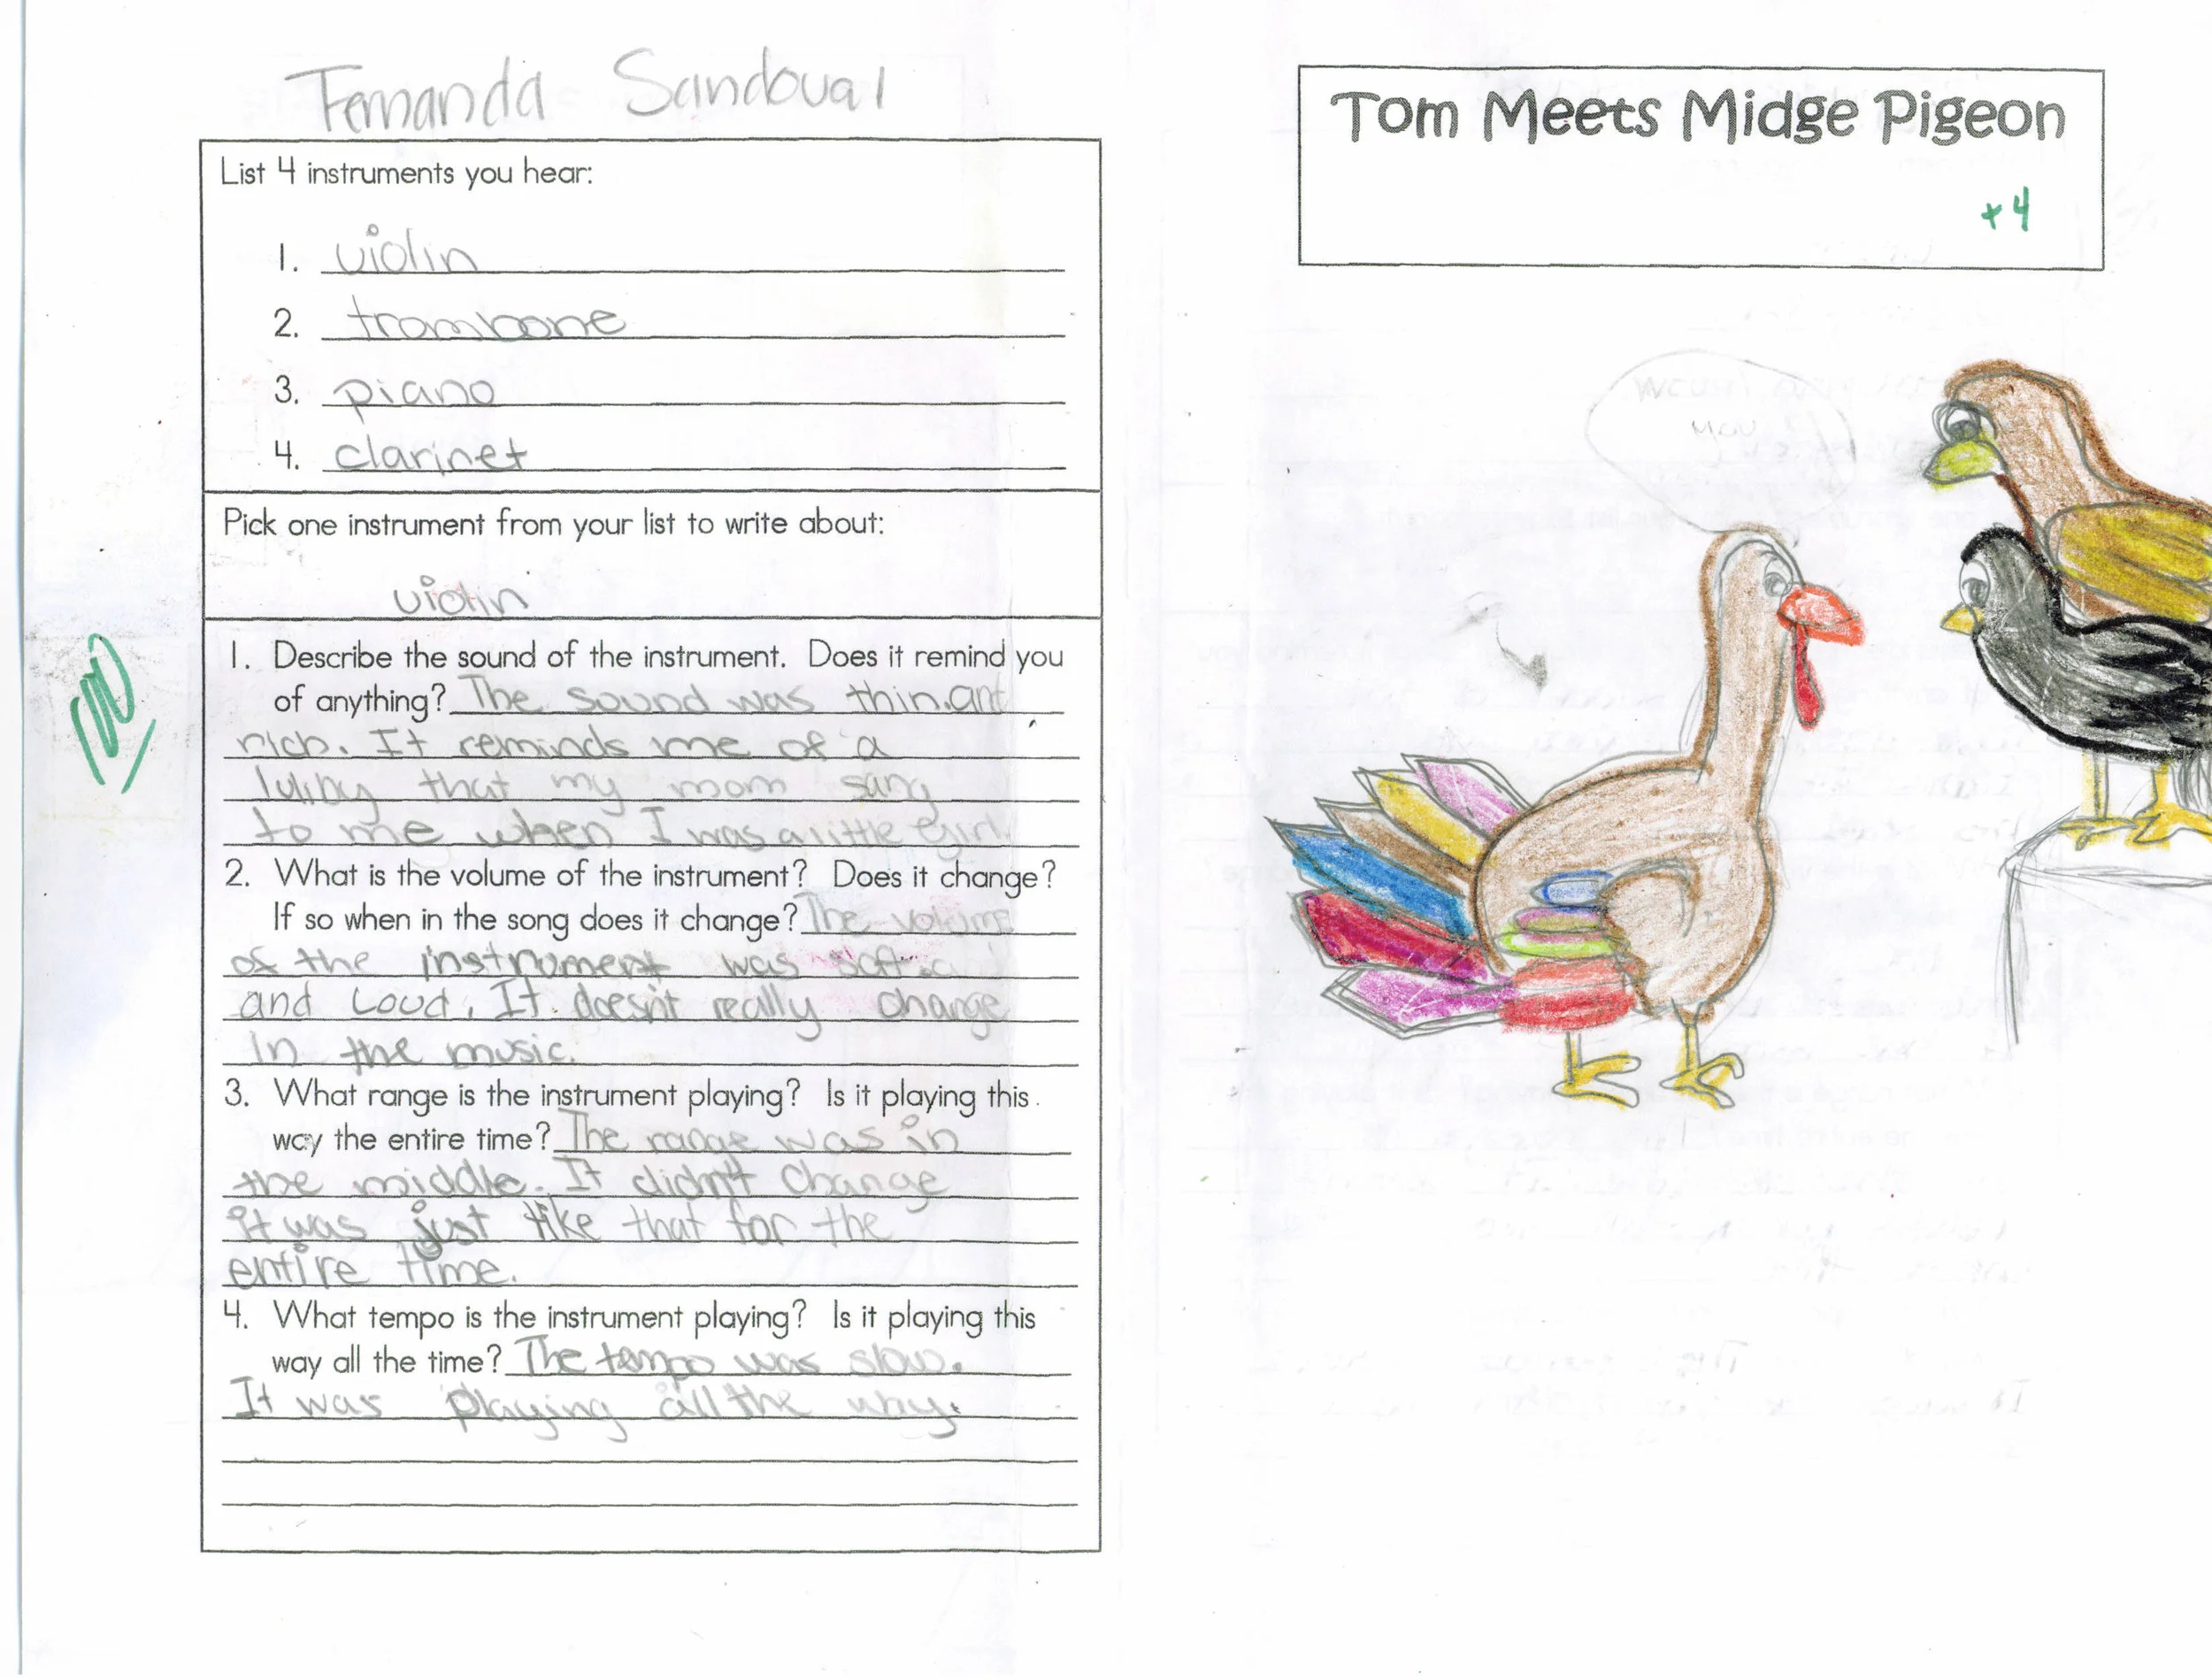 Fernanda Sandoval
List 4 instruments you hear:
1. violin
2. trombone
3. piano
4. clarinet
Pick one instrument from your list to write about:
violin
1. Describe the sound of the instrument. Does it remind you
of anything? The sound was thin and
rich. It reminds me of a
luliby that my mom sang
to me when I was a little girl.
2. What is the volume of the instrument? Does it change?
If so when in the song does it change? The volume
of the instrument was soft
and Loud. It doesn't really change
in the music.
3. What range is the instrument playing? Is it playing this
way the entire time? The range was in
the middle. It didn't change
it was just like that for the
entire time.
4. What tempo is the instrument playing? Is it playing this
way all the time? The tempo was slow.
It was playing all the way.
100
Tom Meets Midge Pigeon
+4